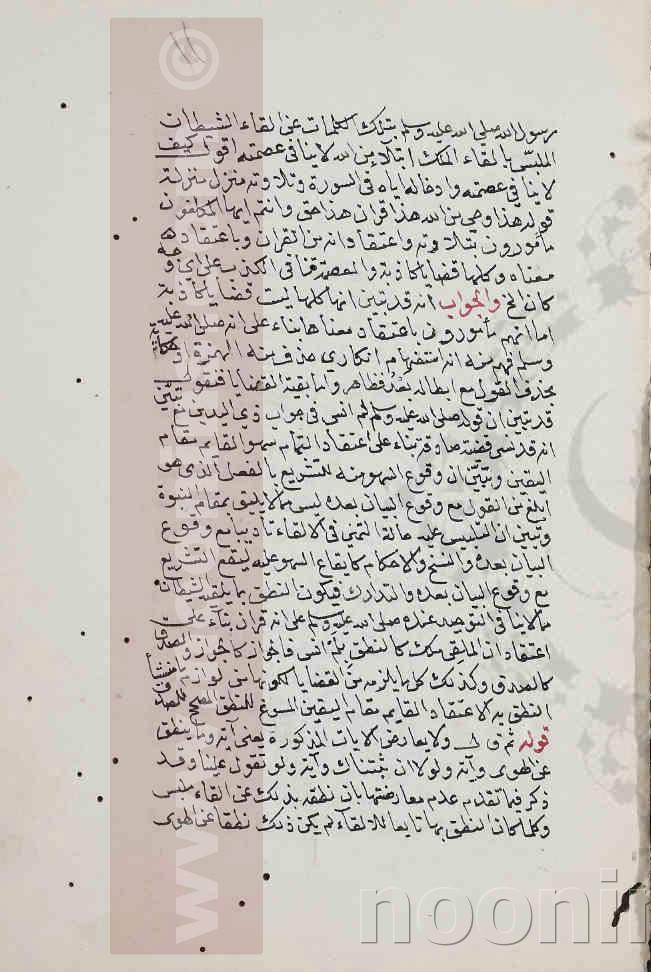 رسول الله صلى الله عليه وسلم بتلك الكلمات عن القاء الشيطان
الملبس بالقاء الملك ابتلاء من الله لا ينافى عصمته اقول كيف
لا ينافي عصمته وادخاله اياه في السورة وتلاوته منزل منزلة
قوله هذا وحي من الله هذا قران هذا حق وانتم ايها المكلفون
مأمورون بتلاوته واعتقاد انه من القران وباعتقاد
معناه وكلها قضايا كاذبة والعصمة تنافى الكذب على اي وجه
كان الخ والجواب انه قد تبين انها كلها ليست قضايا كاذبة
اما انهم مأمورون باعتقاد معناها بناء على انه صلى الله عليه
وسلم فهم منه انه استفهام انكارى حذف منه الهمزة او حكاية
بحذف القول مع ابطاله بعد فظاهر واما بقية القضايا فنقول
قد تبين ان قوله صلى الله عليه وسلم لم انس في جواب ذي اليدين مع
انه قد نسى قضية صادقة بناء على اعتقاد التمام سهوا القايم مقام
اليقين وتبين ان وقوع السهو منه للتشريع بالفعل الذى هو
ابلغ من القول مع وقوع البيان بعده ليس مما لا يليق بمقام النبوة
وتبين ان التلبيس عليه حالة التمني في الالقاء تأديبا مع وقوع
البيان بعده والنسخ والاحكام كايقاع السهو عليه ليقع التشريع
مع وقوع البيان بعده والتدارك فيكون النطق بما يلقيه الشيطان
مما لا ينافى التوحيد عنده صلى الله عليه وسلم على انه قران بناء على
اعتقاد ان الملقي ملك كالنطق بلم انس فالجواز كالجواز والصدق
كالصدق وكذلك كل ما يلزمه من القضايا لكونها من لوازم
النطق به لاعتقاد القايم مقام اليقين المسوغ للنطق
قوله ثم قال ولا يعارض الايات المذكورة يعني آية وما ينطق
عن الهوى وآية ولولا ان ثبتناك وآية ولو تقول علينا وقد
ذكر فيما تقدم عدم معارضتها بان نطقه بذلك عن القاء ملبس
وكلما كان النطق بها تابعا للالقاء لم يكن ذلك نطقا عن الهوى
noonir